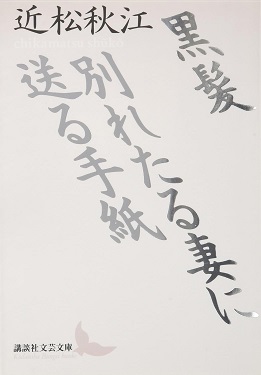 近松秋江
Chikamatsu Shūkō
黒髪
別れたる妻に
送る手紙
講談社文芸文庫